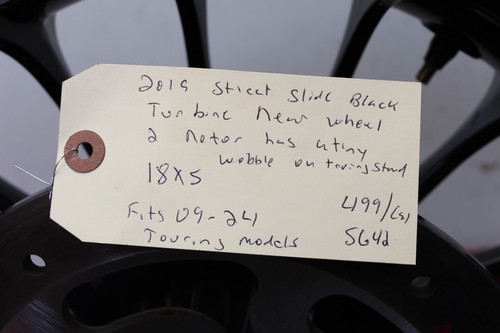 2019 Street Slide Black
Turbine Rear wheel
2 Rotor has a tiny
wobble on truing stand
18x5
499/
Fits 09-24
Touring models